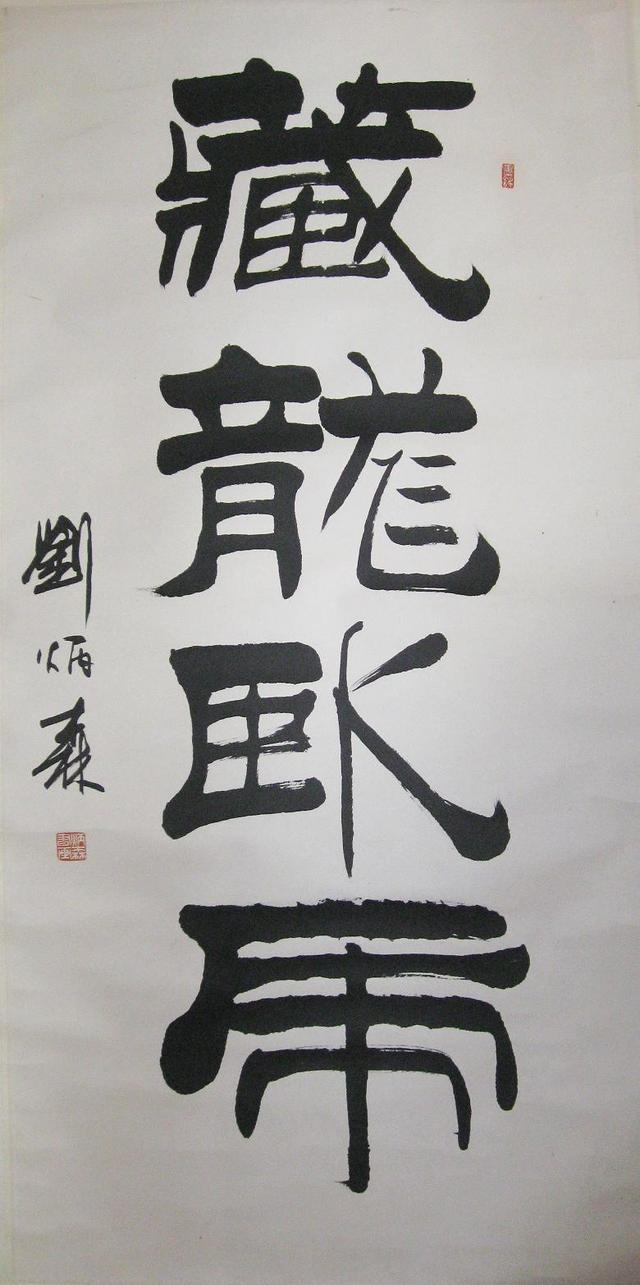 藏龍臥虎
劉炳森